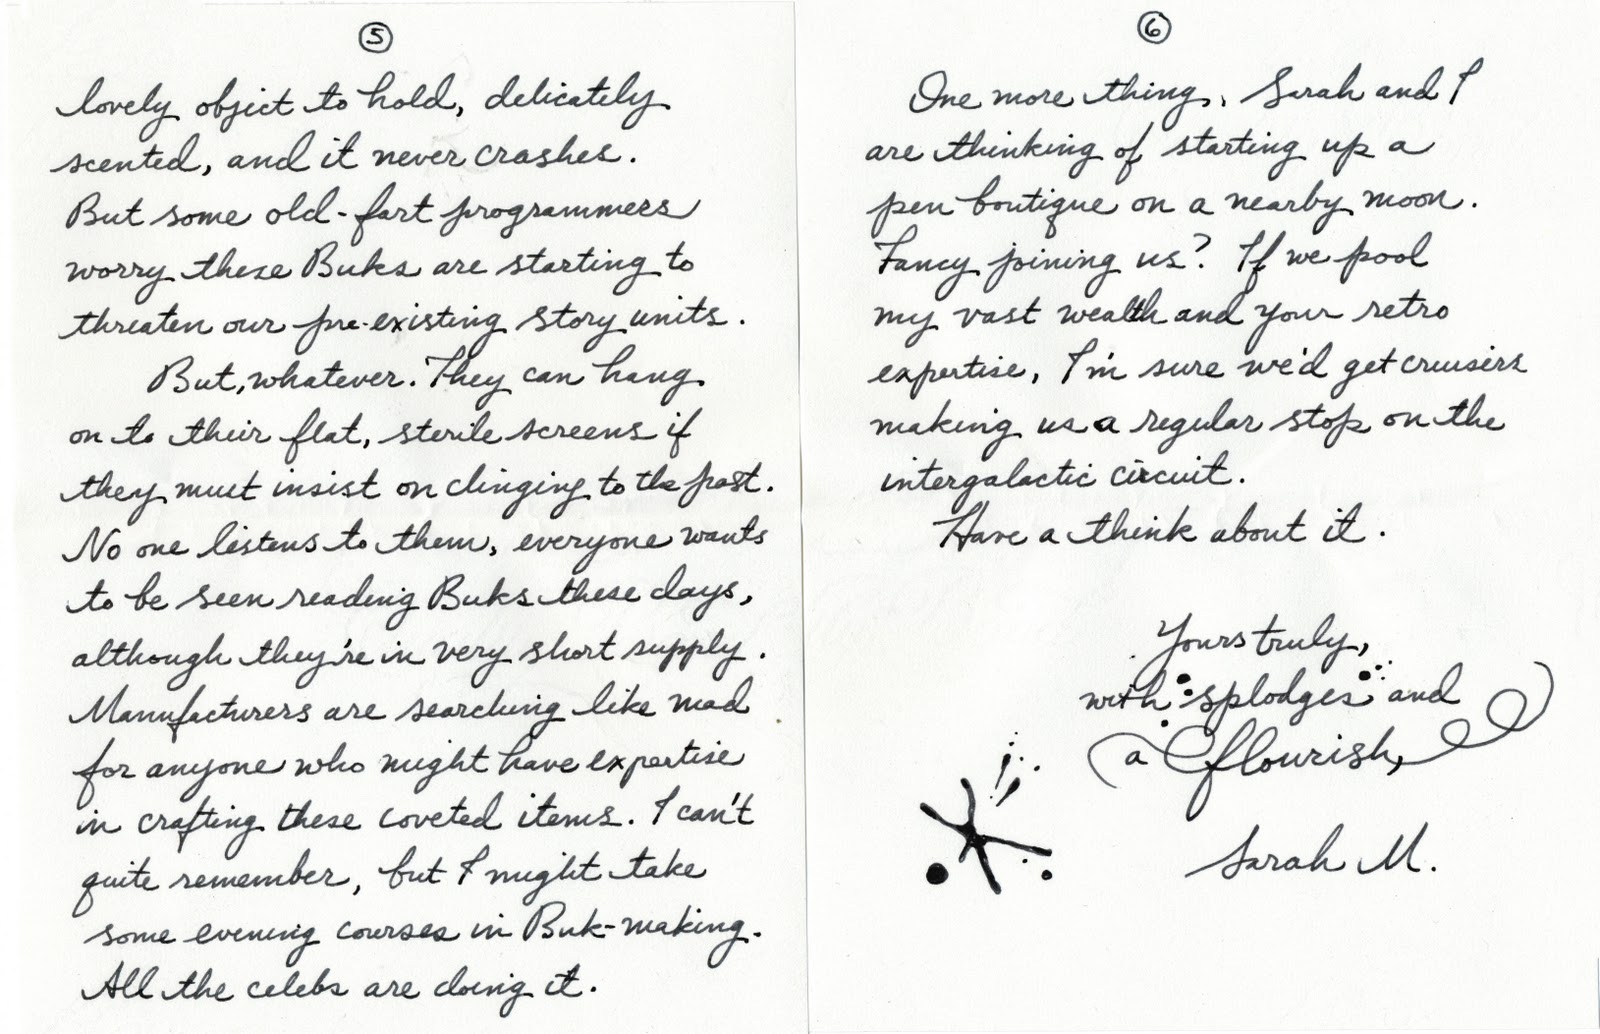 5
lovely object to hold, delicately
scented, and it never crashes.
But some old-fart programmers
worry these Buks are starting to
threaten our pre-existing story units.
But, whatever. They can hang
on to their flat, sterile screens if
they must insist on clinging to the past.
No one listens to them, everyone wants
to be seen reading Buks these days,
although they're in very short supply.
Manufacturers are searching like mad
for anyone who might have expertise
in crafting these coveted items. I can't
quite remember, but I might take
some evening courses in Buk-making.
All the celebs are doing it.
6
One more thing, Sarah and I
are thinking of starting up a
pen boutique on a nearby moon.
Fancy joining us? If we pool
my vast wealth and your retro
expertise, I'm sure we'd get cruisers
making us a regular stop on the
intergalactic circuit.
Have a think about it.
Yours truly,
with splodges and
a flourish,
Sarah M.